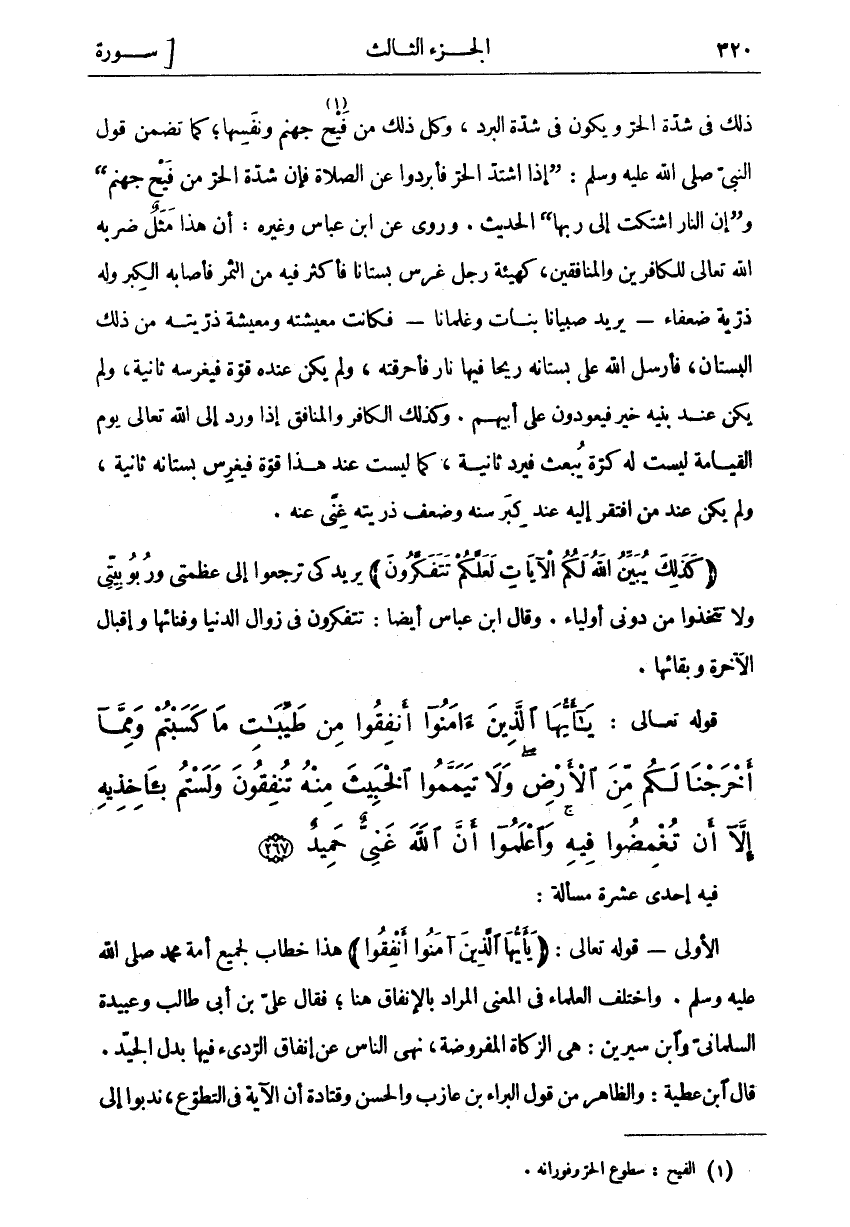 ٣٢٠ الجـــزء الثـالث [ ســـورة
ذلك فى شدّة الحرّ ويكون فى شدّة البرد ، وكل ذلك من فَيْح(١) جهنم ونَفَسِها؛ كما تضمن قول
النبىّ صلى الله عليه وسلم : ”إذا اشتدّ الحرّ فأبردوا عن الصلاة فإن شدّة الحرّ من فَيْح جهنم“
و”إن النار اشتكت إلى ربها“ الحديث . وروى عن ابن عباس وغيره : أن هذا مَثَلٌ ضربه
الله تعالى للكافرين والمنافقين، كهيئة رجل غرس بستانا فأكثر فيه من الثمر فأصابه الكِبر وله
ذرّية ضعفاء — يريد صبيانا بنـات وغلمانا — فـكانت معيشته ومعيشة ذرّيتـه من ذلك
البستان، فأرسل الله على بستانه ريحا فيها نار فأحرقته ، ولم يكن عنده قوّة فيغرسه ثانية، ولم
يكن عنـد بنيه خير فيعودون على أبيهـم . وكذلك الكافر والمنافق إذا ورد إلى الله تعالى يوم
القيـامة ليست له كرّة يُبعث فيرد ثانيـة ، كما ليست عند هـذا قوّة فيغرِس بستانه ثانية ،
ولم يكن عند من افتقر إليه عند كِبَر سنه وضعف ذريته غِنًى عنه .
﴿كَذَلِكَ يُبَيِّنُ اللهُ لَكُمُ الْآيَاتِ لَعَلَّكُمْ تَتَفَكَّرُونَ﴾ يريد كى ترجعوا إلى عظمتى ورُبُوبِيّتِى
ولا تتّخذوا من دونى أولياء . وقال ابن عباس أيضا : تتفكرون فى زوال الدنيا وفنائها وإقبال
الآخرة وبقائها .
قوله تعـالى : يَـٰٓأَيُّهَا ٱلَّذِينَ ءَامَنُوٓا۟ أَنفِقُوا۟ مِن طَيِّبَـٰتِ مَا كَسَبْتُمْ وَمِمَّآ
أَخْرَجْنَا لَكُم مِّنَ ٱلْأَرْضِ ۖ وَلَا تَيَمَّمُوا۟ ٱلْخَبِيثَ مِنْهُ تُنفِقُونَ وَلَسْتُم بِـَٔاخِذِيهِ
إِلَّآ أَن تُغْمِضُوا۟ فِيهِ ۚ وَٱعْلَمُوٓا۟ أَنَّ ٱللَّهَ غَنِىٌّ حَمِيدٌ ٢٦٧
فيه إحدى عشرة مسألة :
الأولى — قوله تعالى : ﴿يَأَيُّهَا ٱلَّذِينَ آمَنُوا أَنْفِقُوا﴾ هذا خطاب لجميع أمة محمد صلى الله
عليه وسلم . واختلف العلماء فى المعنى المراد بالإنفاق هنا ؛ فقال علىّ بن أبى طالب وعبيدة
السلمانىّ وٱبن سيرين : هى الزكاة المفروضة، نهى الناس عن إنفاق الرّدىء فيها بدل الجيّد .
قال ٱبن عطية : والظاهر من قول البراء بن عازب والحسن وقتادة أن الآية فى التطوّع، ندبوا إلى
(١) الفيح : سطوع الحرّ وفورانه .